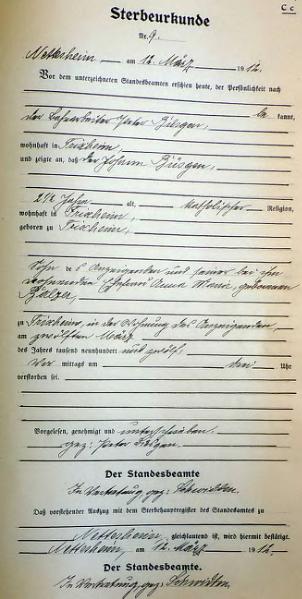 C c
Sterbeurkunde
Nr. 9
Nettersheim, am 12. März 1912.
Vor dem unterzeichneten Standesbeamten erschien heute, der Persönlichkeit nach
der Peter kannt,
wohnhaft in
und zeigte an, daß der Johann Büsgen,
2 1/2 Jahre alt, katholischer Religion,
wohnhaft in
geboren zu
Sohn des Anzeigenden und seiner bei ihm
wohnenden Ehefrau Anna Maria, geborenen
Balzer,
zu in der Wohnung des Anzeigenden,
am zwölften März
des Jahres tausend neunhundert und zwölf,
Vor mittags um Uhr
verstorben sei.
Vorgelesen, genehmigt und unterschrieben.
gez: Peter Büsgen.
Der Standesbeamte
In Vertretung gez:
Daß vorstehender Auszug mit dem Sterbehauptregister des Standesamtes zu
Nettersheim, gleichlautend ist, wird hiermit bestätigt.
Nettersheim, am 12. März 1912.
Der Standesbeamte.
In Vertretung, gez: